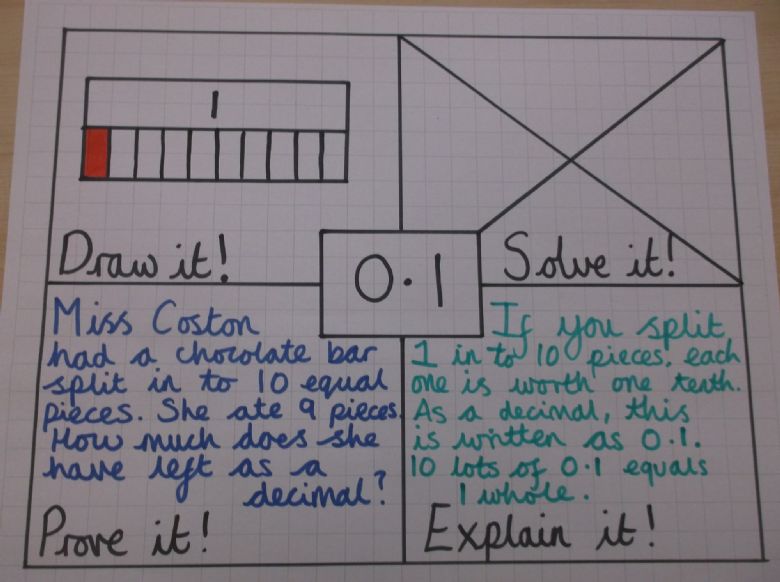 1
Draw it!
Solve it!
0.1
Miss Coston
had a chocolate bar
split in to 10 equal
pieces. She ate 9 pieces.
How much does she
have left as a
decimal?
Prove it!
If you split
1 in to 10 pieces, each
one is worth one tenth.
As a decimal, this
is written as 0.1.
10 lots of 0.1 equals
1 whole.
Explain it!